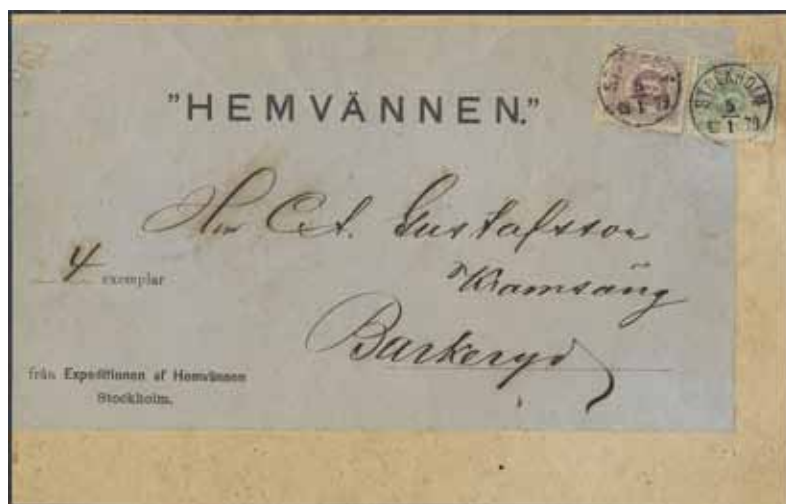 "HEMVÄNNEN."
STOCKHOLM
5
1 79
Herr C.A. Gustafsson
Kramsäng
4 exemplar
Barkeryd
från Expeditionen af Hemvännen
Stockholm.